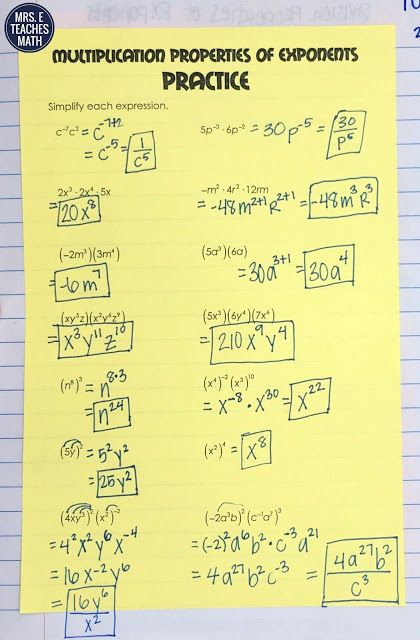 MRS. E
TEACHES
MATH
MULTIPLICATION PROPERTIES OF EXPONENTS
PRACTICE
Simplify each expression.
c⁻⁷c² = c⁻⁷⁺²
= c⁻⁵ = 1/c⁵
5p⁻³ · 6p⁻² = 30p⁻⁵ = 30/p⁵
2x³ · 2x⁴ · 5x
= 20x⁸
-m² · 4r² · 12rm
= -48m²⁺¹r²⁺¹ = -48m³r³
(-2m³)(3m⁴)
= -6m⁷
(5a³)(6a)
= 30a³⁺¹ = 30a⁴
(xy⁵z)(x²y⁶z⁹)
= x³y¹¹z¹⁰
(5x³)(6y⁴)(7x⁶)
= 210x⁹y⁴
(n⁸)³ = n⁸·³
= n²⁴
(x⁴)⁻²(x³)¹⁰
= x⁻⁸ · x³⁰ = x²²
(5y)² = 5²y²
= 25y²
(x²)⁴ = x⁸
(4xy³)²(x²)⁻²
= 4²x²y⁶x⁻⁴
= 16x⁻²y⁶
= 16y⁶/x²
(-2a³b)²(c⁻¹a⁷)³
= (-2)²a⁶b² · c⁻³a²¹
= 4a²⁷b²c⁻³ = 4a²⁷b²/c³